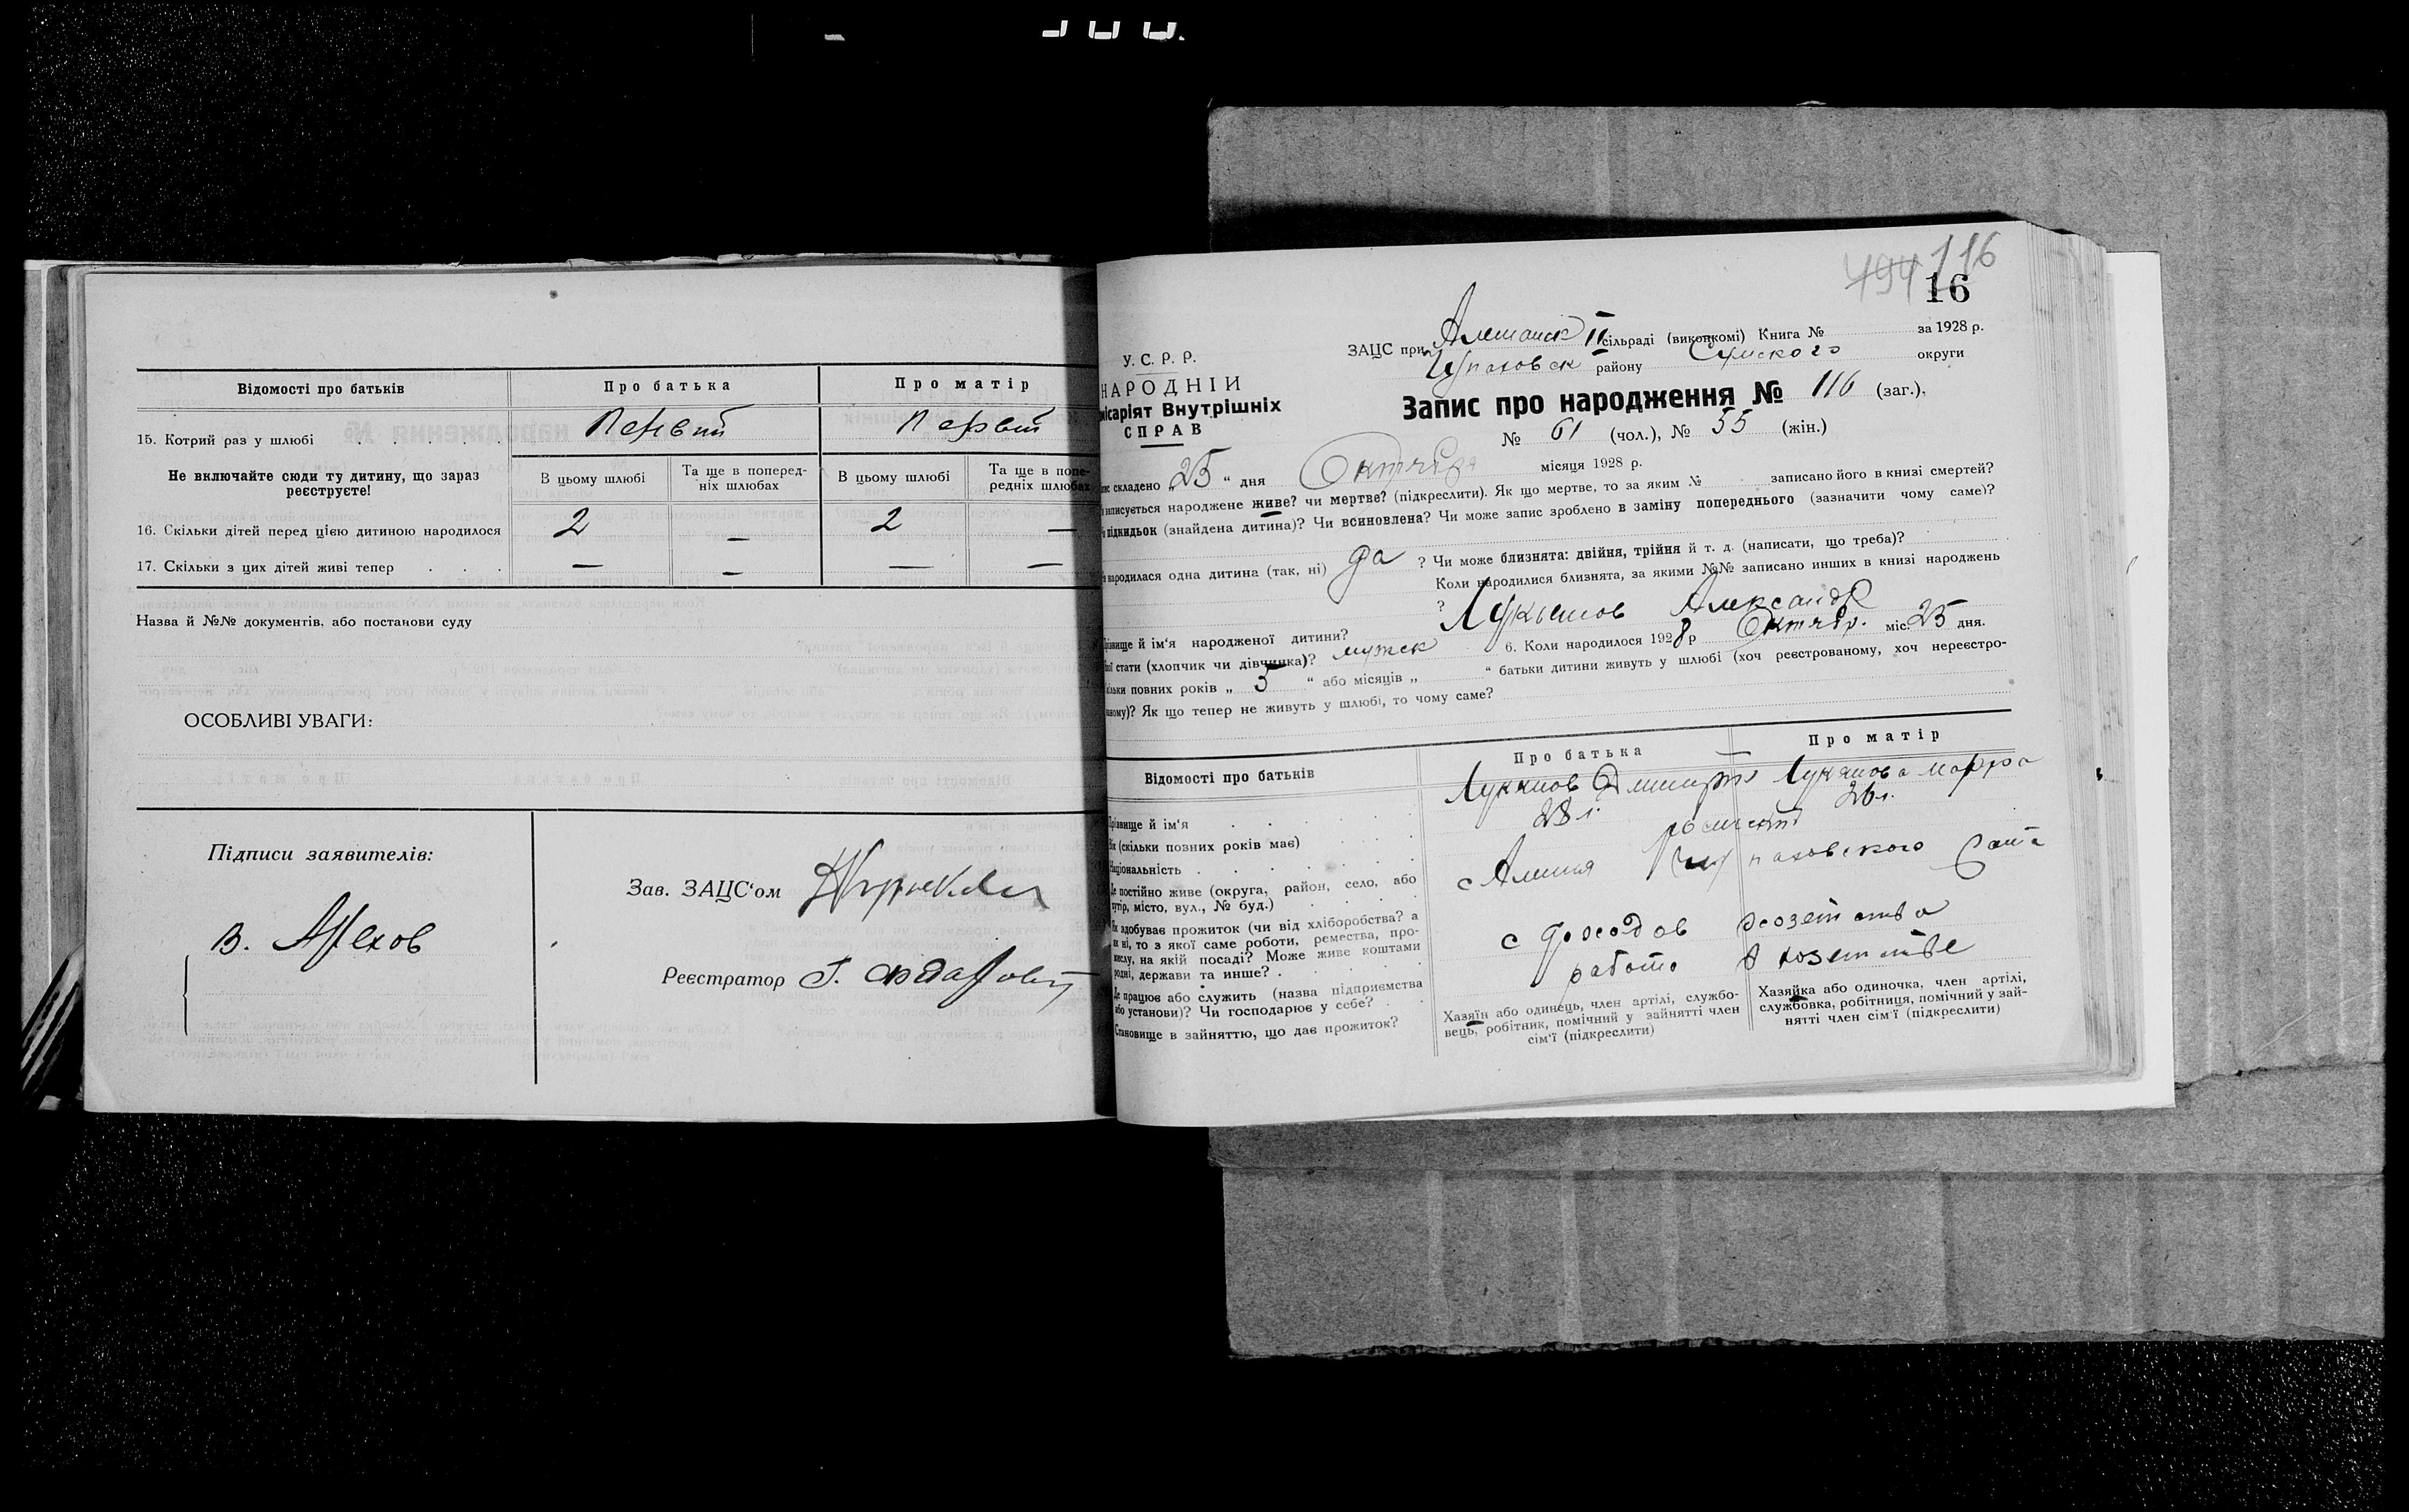 Відомості про батьків Про батька Про матір
15. Котрий раз у шлюбі . . . Первый Первый
Не включайте сюди ту дитину, що зараз реєструєте!
В цьому шлюбі Та ще в поперед-
ніх шлюбах
В цьому шлюбі Та ще в попе-
редніх шлюбах
16. Скільки дітей перед цією дитиною народилося 2 — 2 —
17. Скільки з цих дітей живі тепер . . . — — — —
Назва й №№ документів, або постанови суду
ОСОБЛИВІ УВАГИ:
Підписи заявителів:
Зав. ЗАЦС‘ом
В. Орехов
Реєстратор
116
16
У. С. Р. Р.
НАРОДНІЙ
місаріят Внутрішніх
СПРАВ
ЗАЦС при II сільраді (виконкомі) Книга № за 1928 р.
району Сумского округи
Запис про народження № 116 (заг.),
№ 61 (чол.), № 55 (жін.)
складено „25“ дня Октября місяця 1928 р.
записується народжене живе? чи мертве? (підкреслити). Як що мертве, то за яким № записано його в книзі смертей?
підкидьок (знайдена дитина)? Чи всиновлена? Чи може запис зроблено в заміну попереднього (зазначити чому саме)?
народилася одна дитина (так, ні) да ? Чи може близнята: двійня, трійня й т. д. (написати, що треба)?
Коли народилися близнята, за якими №№ записано инших в книзі народжень
?
Прізвище й ім‘я народженої дитини? Лукьянов Александр
стати (хлопчик чи дівчинка)? мужск 6. Коли народилося 1928 р Октябр. міс. 25 дня.
повних років „ 5 “ або місяців „ “ батьки дитини живуть у шлюбі (хоч реєстрованому, хоч нереєстро-
ваному)? Як що тепер не живуть у шлюбі, то чому саме?
Відомості про батьків Про батька Про матір
Прізвище й ім‘я . . . Лукянов Дмитрий Лукянова Марфа
Вік (скільки повних років має) . . 28 л. 26 л.
Національність . . .
Де постійно живе (округа, район, село, або
хутір, місто, вул., № буд.) . . .
Як здобуває прожиток (чи від хліборобства? а
як ні, то з якої саме роботи, ремества, про-
мислу, на якій посаді? Може живе коштами
родні, держави та инше? . . .
с доходов
Де працює або служить (назва підприємства
або установи)? Чи господарює у себе? . .
Становище в зайняттю, що дає прожиток?
Хазяїн або одинець, член артілі, службо-
вець, робітник, помічний у зайнятті член
сім‘ї (підкреслити)
Хазяйка або одиночка, член артілі,
службовка, робітниця, помічний у зай-
нятті член сім‘ї (підкреслити)